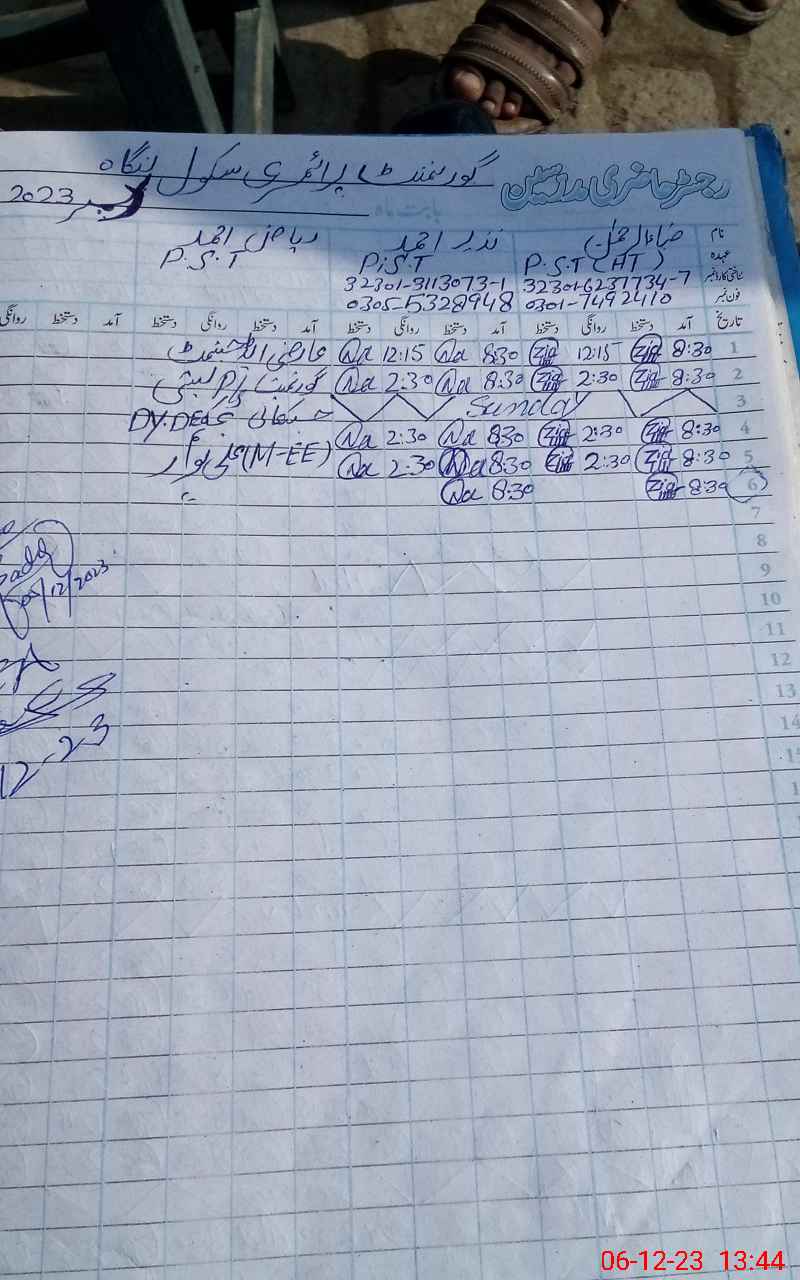 رجسٹر حاضری ملازمین گورنمنٹ پرائمری سکول لنگاہ
بابت ماہ دسمبر 2023
نام ضیاءالرحمٰن نذیر احمد ریاض احمد
عہدہ P.S.T (HT) P.S.T P.S.T
شناختی کارڈ نمبر 32301-6237734-7 32301-9113073-1
فون نمبر 0301-7492410 0305-5328948
تاریخ آمد دستخط روانگی دستخط آمد دستخط روانگی دستخط آمد دستخط روانگی دستخط آمد دستخط روانگی
1 8:30 Zia 12:15 Zia 8:30 Na 12:15 Na عارضی
2 8:30 Zia 2:30 Zia 8:30 Na 2:30 Na
3 Sunday DY.DEO
4 8:30 Zia 2:30 Zia 8:30 Na 2:30 Na
5 8:30 Zia 2:30 Zia 8:30 Na 2:30 Na (M-EE)
6 8:30 Zia 8:30 Na
7
8
9
10
11
12
13
14
05/12/2023
12-23
06-12-23 13:44